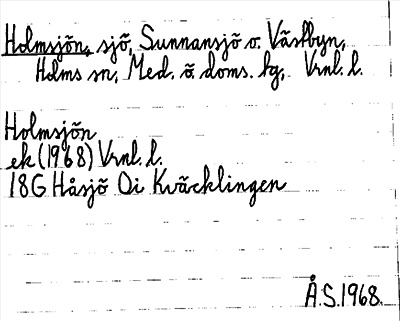 Holmsjön, sjö, Sunnansjö o. Västbyn,
Holms sn, Med. ö doms. hg, Vrnl. l.
Holmsjön
ek (1968) Vrnl. l.
18G Håsjö Oi Kväcklingen
Å.S. 1968.